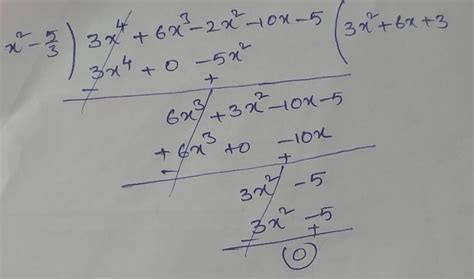 x² - 5/3 ) 3x⁴ + 6x³ - 2x² - 10x - 5 ( 3x² + 6x + 3
3x⁴ + 0 - 5x²
- +
6x³ + 3x² - 10x - 5
+ 6x³ + 0 - 10x
- +
3x² - 5
3x² - 5
- +
0